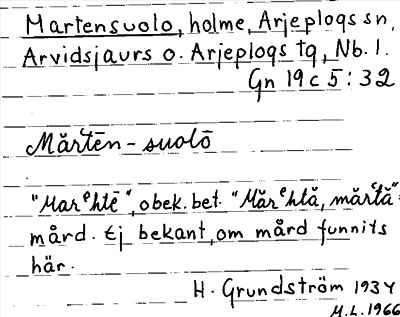 Martensuolo, holme, Arjeplogs sn,
Arvidsjaurs o. Arjeplogs tg, Nb. l.
Gn 19 c 5:32
Mărtēn-suolō
"Marᵉhtē", obek. bet. "Mărᵉhtă, mărᵉtă"
mård. Ej bekant, om mård funnits
här.
H. Grundström 1934
M.L. 1966